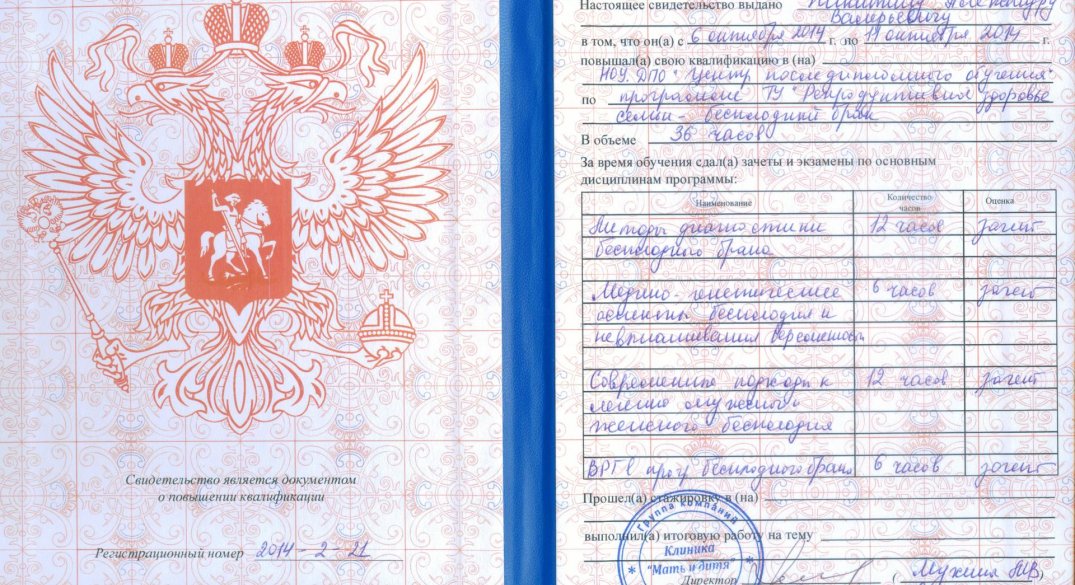 Свидетельство является документом
о повышении квалификации
Регистрационный номер 2014-2-21
Настоящее свидетельство выдано Никитину Александру
Валерьевичу
в том, что он(а) с 6 октября 2014 г. по 11 октября 2014 г.
повышал(а) свою квалификацию в (на)
НОУ ДПО "Центр последипломного обучения"
по программе ТУ "Репродуктивное здоровье
семьи - бесплодный брак
В объеме 36 часов
За время обучения сдал(а) зачеты и экзамены по основным
дисциплинам программы:
Наименование Количество часов Оценка
Методы диагностики 12 часов зачет
бесплодного брака
Медико-генетические 6 часов зачет
аспекты бесплодия и
невынашивания беременности
Современные подходы к 12 часов зачет
лечению мужского и
женского бесплодия
ВРТ в прогр бесплодного брака 6 часов зачет
Прошел(а) стажировку в (на)
выполнил(а) итоговую работу на тему
Группа компаний
Клиника
"Мать и дитя"
Директор